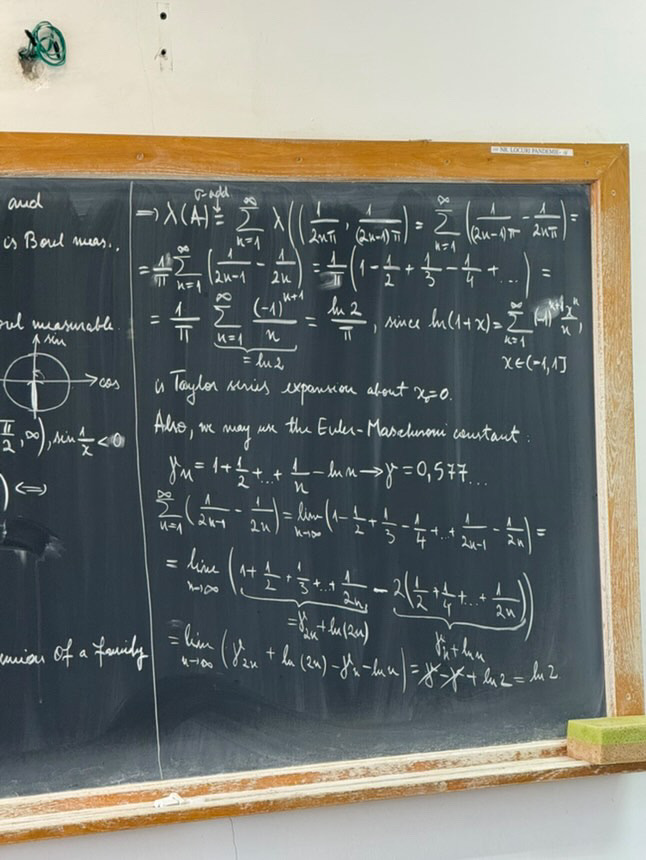 NR. LOCURI PANDEMIE-
and
is Borel meas.,
measurable.
sin
cos
π/2, ∞), sin 1/x < 0
) ⇔
union of a family
σ-add
⇒ λ(A) = ∑_{n=1}^{∞} λ((1/(2nπ), 1/((2n-1)π))) = ∑_{n=1}^{∞} (1/((2n-1)π) - 1/(2nπ)) =
= 1/π ∑_{n=1}^{∞} (1/(2n-1) - 1/(2n)) = 1/π (1 - 1/2 + 1/3 - 1/4 + ...) =
= 1/π ∑_{n=1}^{∞} (-1)^{n+1}/n = ln 2/π, since ln(1+x) = ∑_{n=1}^{∞} (-1)^{n+1} x^n/n,
= ln 2
x ∈ (-1, 1]
is Taylor series expansion about x₀=0.
Also, we may use the Euler-Mascheroni constant:
γ_n = 1 + 1/2 + ... + 1/n - ln n → γ = 0,577...
∑_{n=1}^{∞} (1/(2n-1) - 1/(2n)) = lim_{n→∞} (1 - 1/2 + 1/3 - 1/4 + ... + 1/(2n-1) - 1/(2n)) =
= lim_{n→∞} (1 + 1/2 + 1/3 + ... + 1/(2n) - 2(1/2 + 1/4 + ... + 1/(2n)))
= γ_{2n} + ln(2n)
γ_n + ln n
= lim_{n→∞} (γ_{2n} + ln(2n) - γ_n - ln n) = γ - γ + ln 2 = ln 2